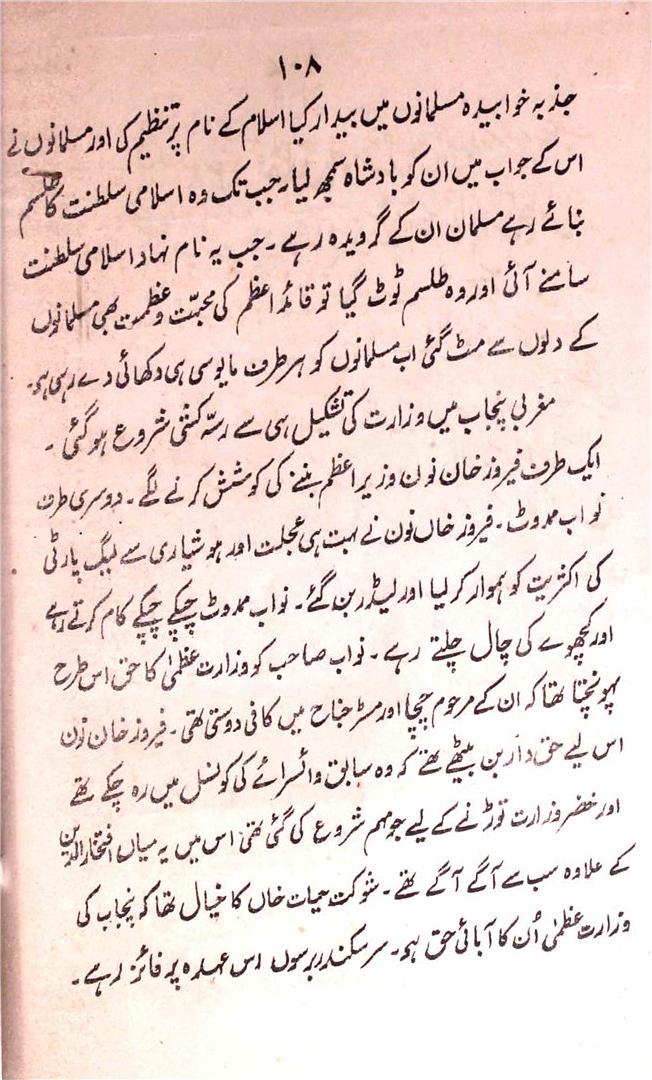 ۱۰۸
جذبہ خوابیدہ مسلمانوں میں بیدار کیا اسلام کے نام پر تنظیم کی اور مسلمانوں نے
اس کے جواب میں ان کو بادشاہ سمجھ لیا۔ جب تک وہ اسلامی سلطنت کا طلسم
بنائے رہے مسلمان ان کے گرویدہ رہے ۔ جب یہ نام نہاد اسلامی سلطنت
سامنے آئی اور وہ طلسم ٹوٹ گیا تو قائد اعظم کی محبّت و عظمت بھی مسلمانوں
کے دلوں سے مٹ گئی اب مسلمانوں کو ہر طرف مایوسی ہی دکھائی دے رہی ہو۔
مغربی پنجاب میں وزارت کی تشکیل ہی سے رسّہ کشی شروع ہو گئی ۔
ایک طرف فیروز خان نون وزیر اعظم بننے کی کوشش کرنے لگے ۔ دوسری طرف
نواب ممدوٹ ۔ فیروز خاں نون نے بہت ہی عجلت اور ہوشیاری سے لیگ پارٹی
کی اکثریت کو ہموار کر لیا اور لیڈر بن گئے ۔ نواب ممدوٹ چپکے چپکے کام کرتے رہے
اور کچھوے کی چال چلتے رہے ۔ نواب صاحب کو وزارت عظمیٰ کا حق اس طرح
پہونچتا تھا کہ ان کے مرحوم چچا اور مسٹر جناح میں کافی دوستی تھی ۔ فیروز خان نون
اس لیے حق دار بن بیٹھے تھے کہ وہ سابق وائسرائے کی کونسل میں رہ چکے تھے
اور خضر وزارت توڑنے کے لیے جو مہم شروع کی گئی تھی اس میں یہ میاں افتخار الدین
کے علاوہ سب سے آگے آگے تھے ۔ شوکت حیات خاں کا خیال تھا کہ پنجاب کی
وزارت عظمیٰ اُن کا آبائی حق ہو۔ سر سکندر برسوں اس عہدہ پر فائز رہے ۔